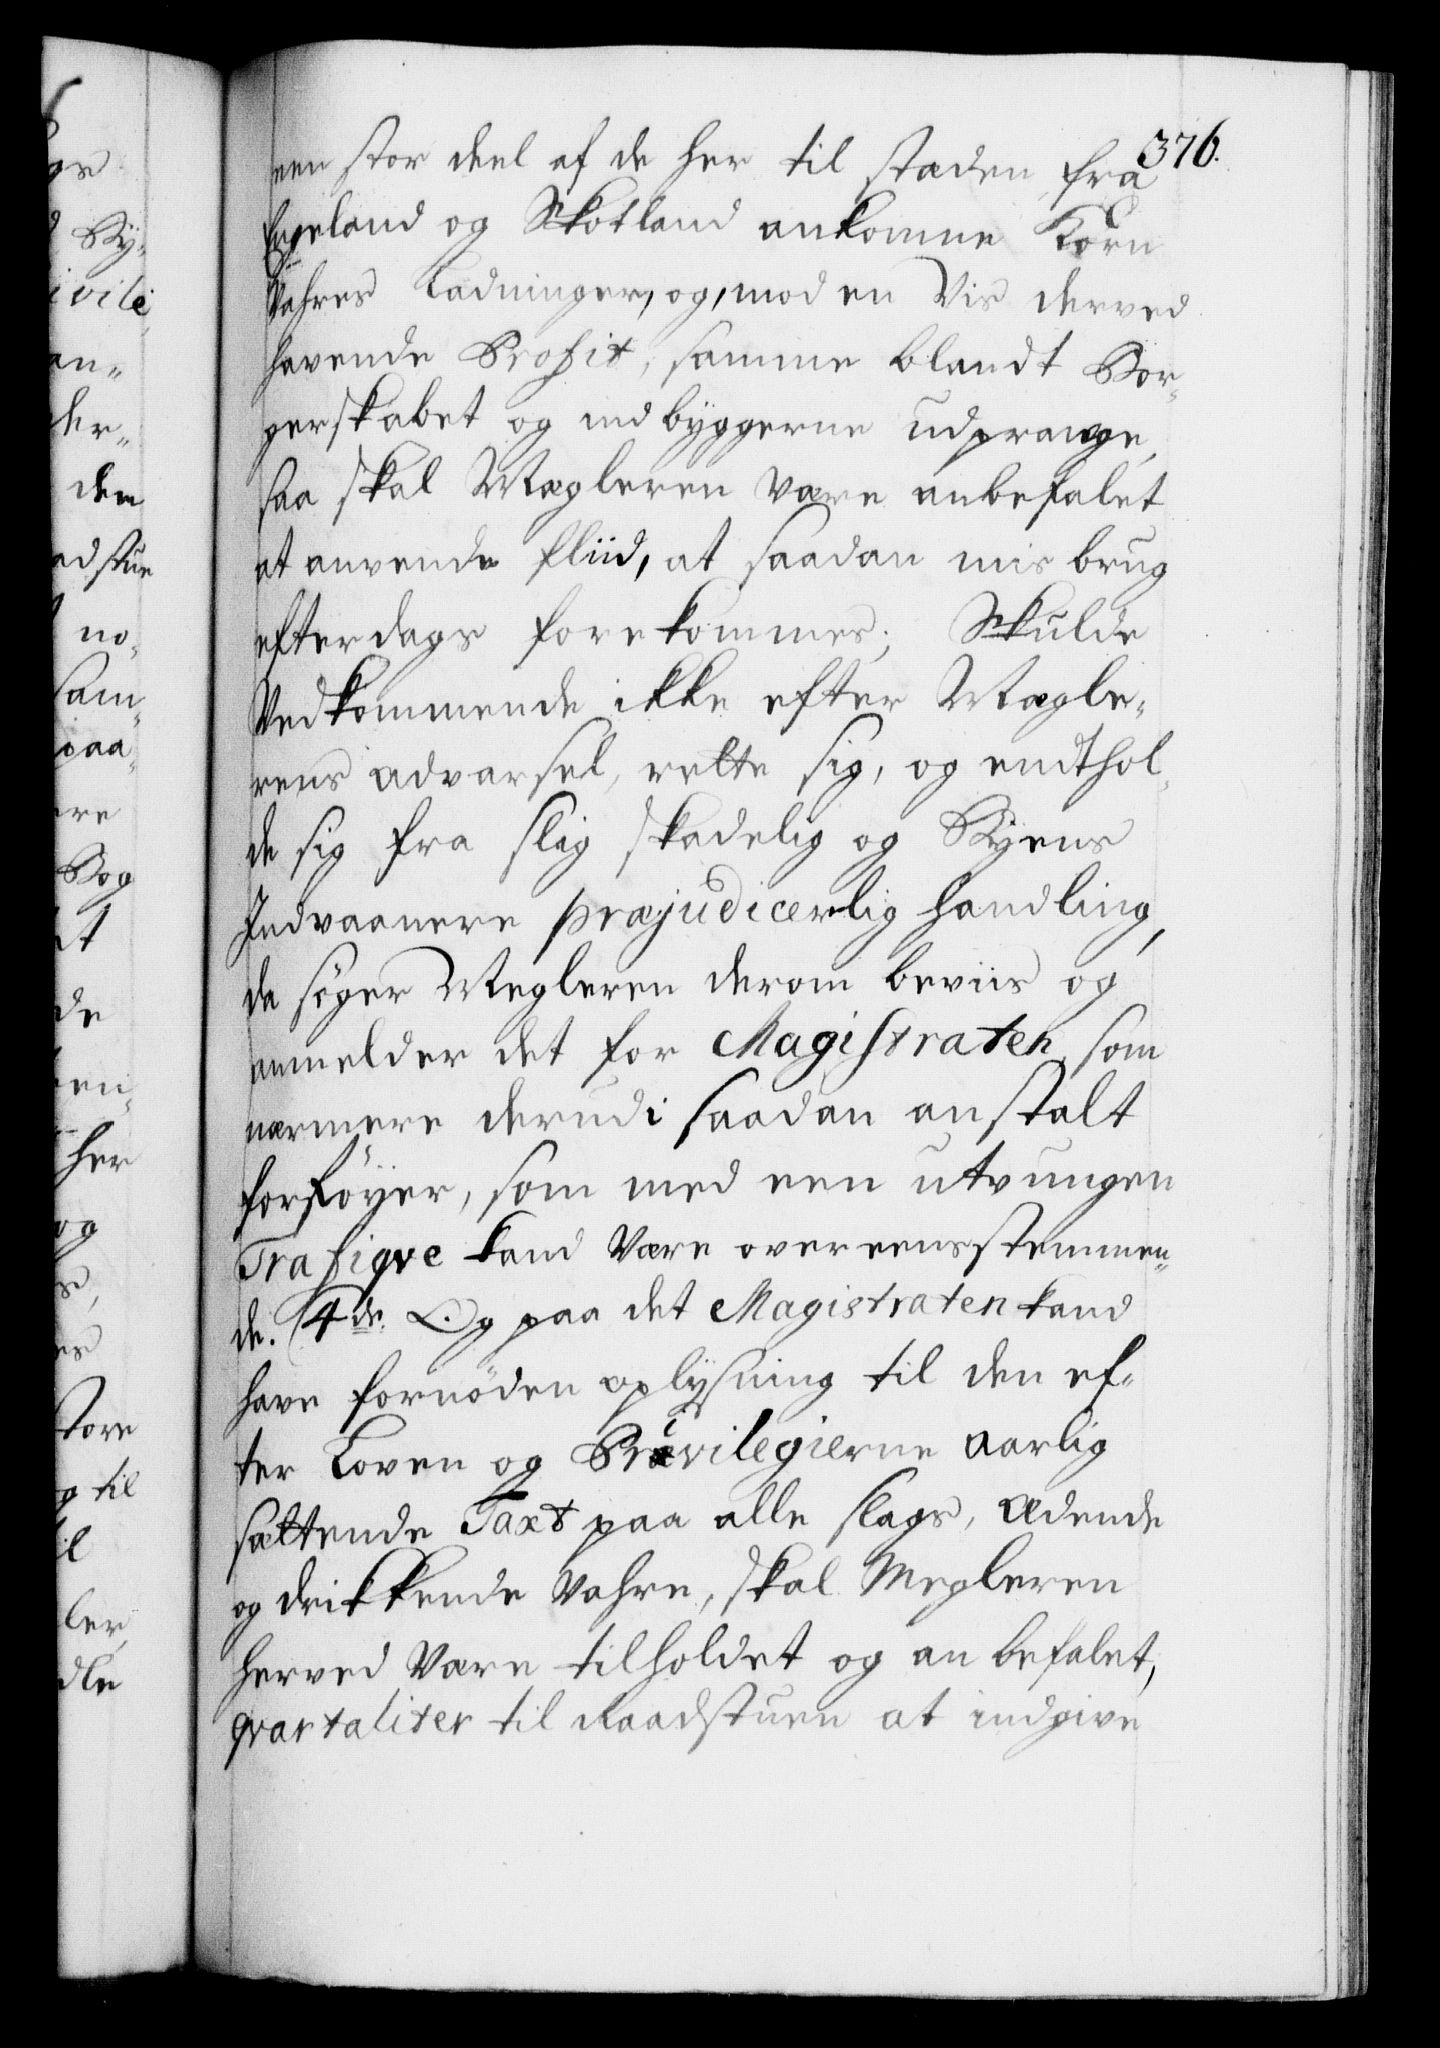 376.
een stor deel af de her til staden fra
Engeland og Skotland ankomne Korn
Vahres Ladninger, og, mod en Vis derved
havende Profit, samme blandt Bor-
gerskabet og indbyggerne udprange,
saa skal Mægleren være anbefalet
at anvende fliid, at saadan misbrug
efterdags forekommes; Skulde
Vedkommende ikke efter Mægle-
rens advarsel, rette sig, og endthol-
de sig fra slig skadelig og Byens
Indvaanere præjudicerlig handling,
da söger Megleren derom beviis og
anmelder det for Magistraten, som
nærmere derudi saadan anstalt
forföyer, som med een utvungen
Trafiqve kand være overeensstemmen-
de. (4de. Og paa det Magistraten kand
have fornöden oplysning til den ef-
ter Loven og Privilegierne aarlig
sættende Taxt paa alle slags, ædende
og drikkende Vahre, skal Megleren
herved være tilholdet og anbefalet,
qvartaliter til Raadstuen at indgive